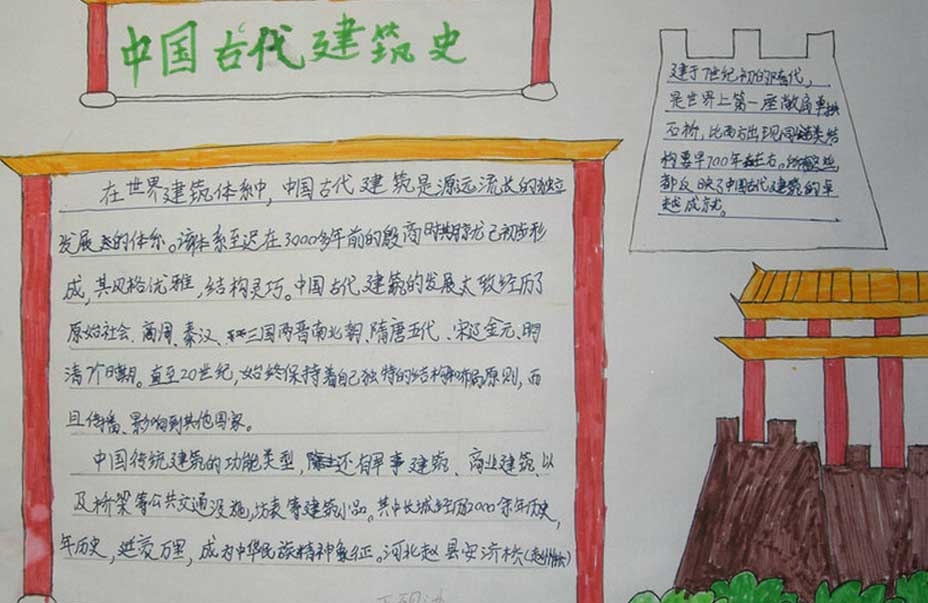 中国古代建筑史
在世界建筑体系中，中国古代建筑是源远流长的独立
发展的体系。该体系至迟在3000多年前的殷商时期就已初步形
成，其风格优雅，结构灵巧。中国古代建筑的发展大致经历了
原始社会、商周、秦汉、三国两晋南北朝、隋唐五代、宋辽金元、明
清7个时期。直至20世纪，始终保持着自己独特的结构和布局原则，而
且传播、影响到其他国家。
中国传统建筑的功能类型，还有军事建筑、商业建筑、以
及桥梁等公共交通设施，坊表等建筑小品。其中长城经历2000余年历史，
年历史，延袤万里，成为中华民族精神象征。河北赵县安济桥（赵州桥）
建于7世纪初的隋代，
是世界上第一座敞肩单拱
石桥，比西方出现同类结
构要早700年左右。
都反映了中国古代建筑的卓
越成就。